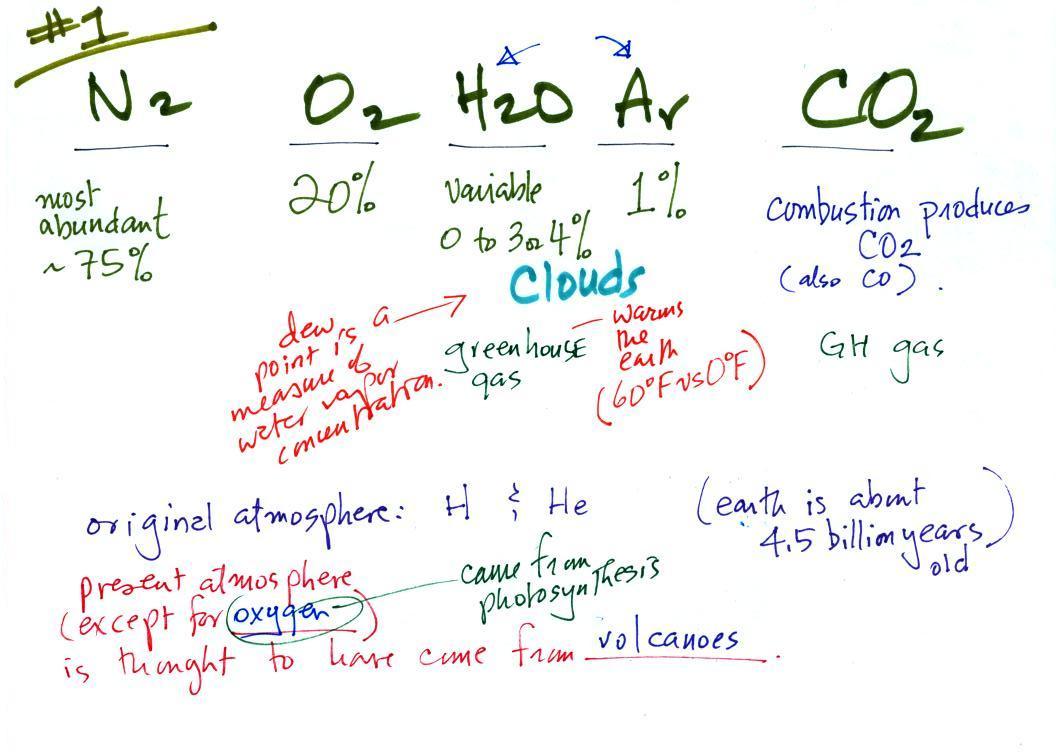 #1
N2 O2 H2O Ar CO2
most
abundant
~ 75%
20%
Variable
0 to 3 or 4%
1%
Combustion produces
CO2
(also CO).
Clouds
dew
point is a
measure of
water vapor
concentration.
greenhouse
gas
warms
the
earth
(60°F vs 0°F)
GH gas
original atmosphere: H & He
(earth is about
4.5 billion years
old)
present atmosphere
(except for oxygen)
came from
photosynthesis
is thought to have come from volcanoes.